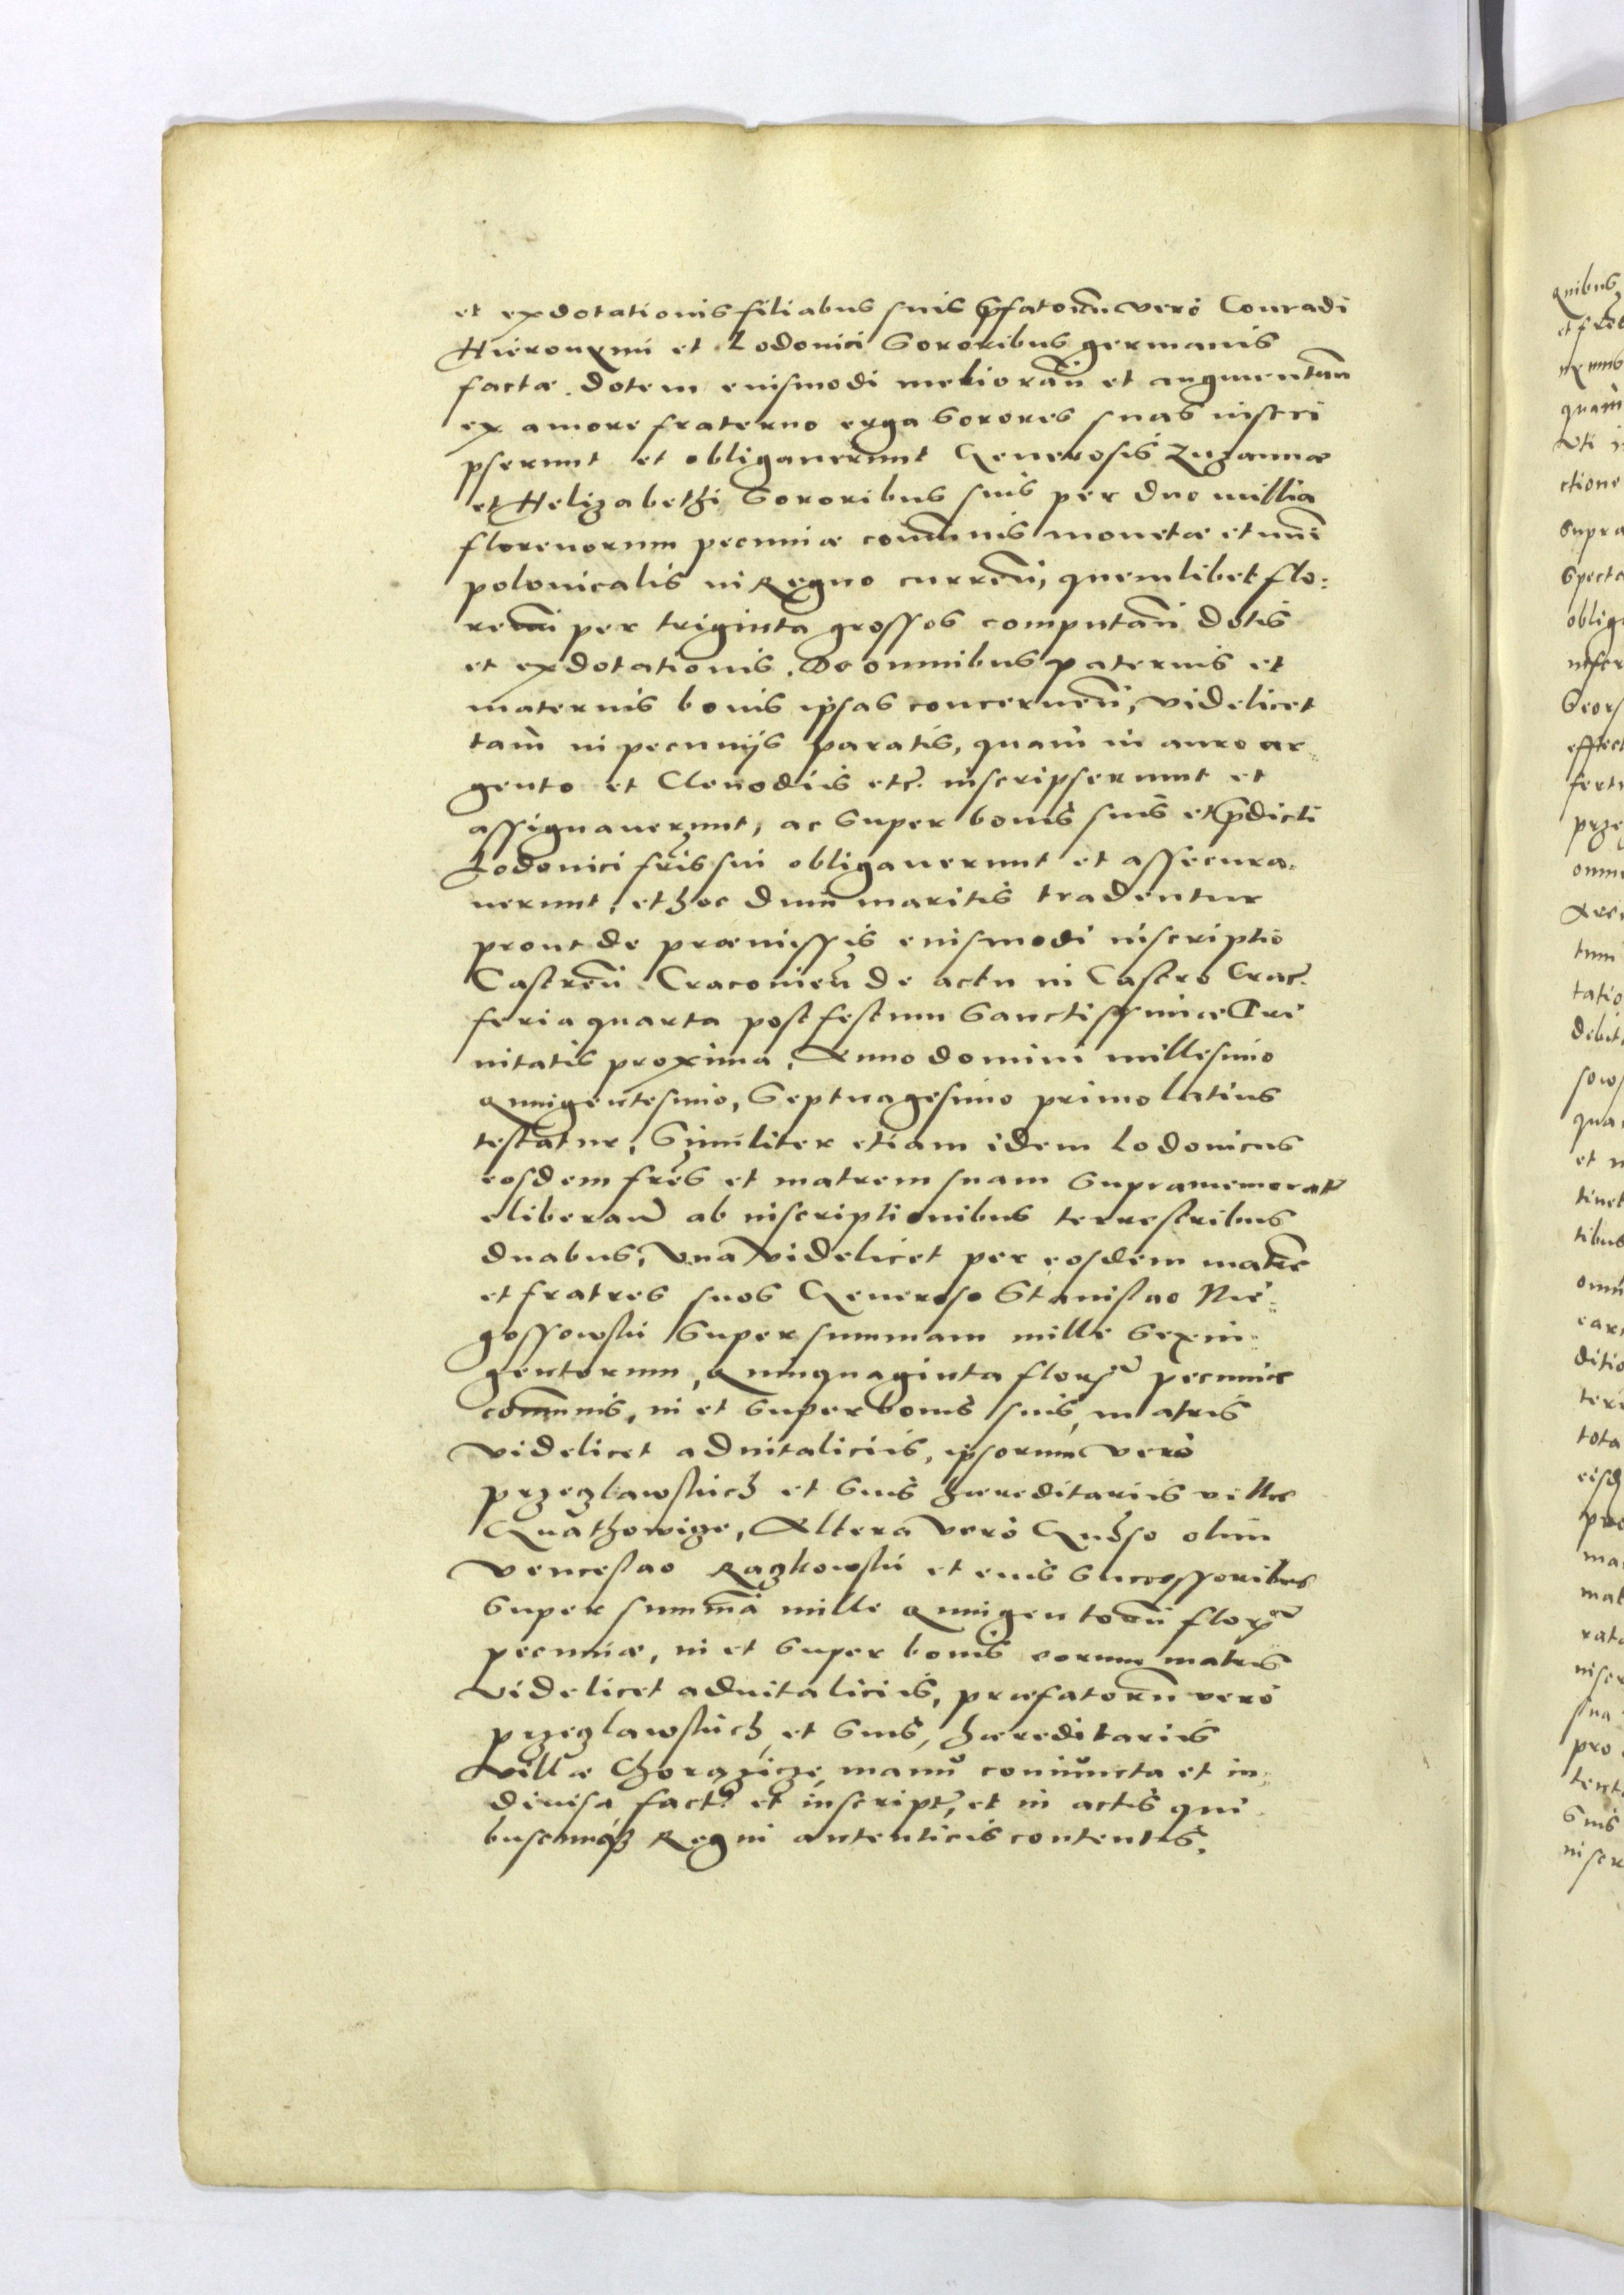 et exdotationis filiabus suis p̄fatorum vero Conradi
Hieronymi et Lodovici Sororibus germanis
factæ. dotem eiusmodi meliorañ et augmentañ
ex amore fraterno erga Sorores suas inscri
pserunt et obligaverunt Generosis Zuzannæ
et Helizabethi Sororibus suis per duo millia
florenorum pecuniæ com̄unis monetæ et nūi
polonicalis in Regno curreñ, quemlibet flo:
renū per triginta grossos computañ dotis
et exdotationis. De omnibus paternis et
maternis bonis ipsas concerneñ, videlicet
tam in pecunijs paratis, quam in auro ar:
gento et Clenodiis etc. inscripserunt et
assignaverunt, ac Super bonis suis et p̄dicti
Lodovici fr̄is sui obligaverunt et assecura:
verunt, et hoc dum maritis tradentur
prout de præmissis eiusmodi inscriptio
Castreñ Cracovieñ de actu in Castro Crac.
feria quarta post festum Sanctissimæ Tri
nitatis proxima, Anno domini millesimo
Quingentesimo, Septuagesimo primo latius
testatur, Similiter etiam idem Lodovicus
eosdem fr̄es et matrem suam Supramemorat
eliberavit ab inscriptionibus terrestribus
duabus, Una videlicet per eosdem matrē
et fratres suos Generoso Stanislao Nie:
gossowski Super summam mille Sexin:
gentorum, Quinquaginta flor. pecuniæ
com̄unis, in et Super bonis suis, matris
videlicet advitaliciis, ipsorum vero
przezlawskich et Suis hæreditariis villæ
Gnathowize, Altera vero Gn̄so olim
Venceslao Razkowski et eius Successoribus
Super sum̄ā mille Quingentorū flor.
pecuniæ, in et Super bonis eorum matris
videlicet advitaliciis, præfatorū vero
przezlawskich, et Suis, hæreditariis
villæ Chorazicze, manu coniuncta et in:
divisa, fact. et inscript, et in actis qui
buscunq3 Regni autenticis contentis.